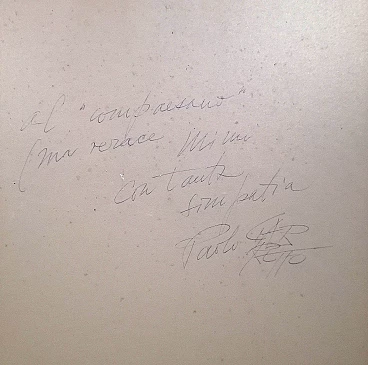 al "compaesano"
(ma verace Mimì
con tanta
simpatia
Paolo